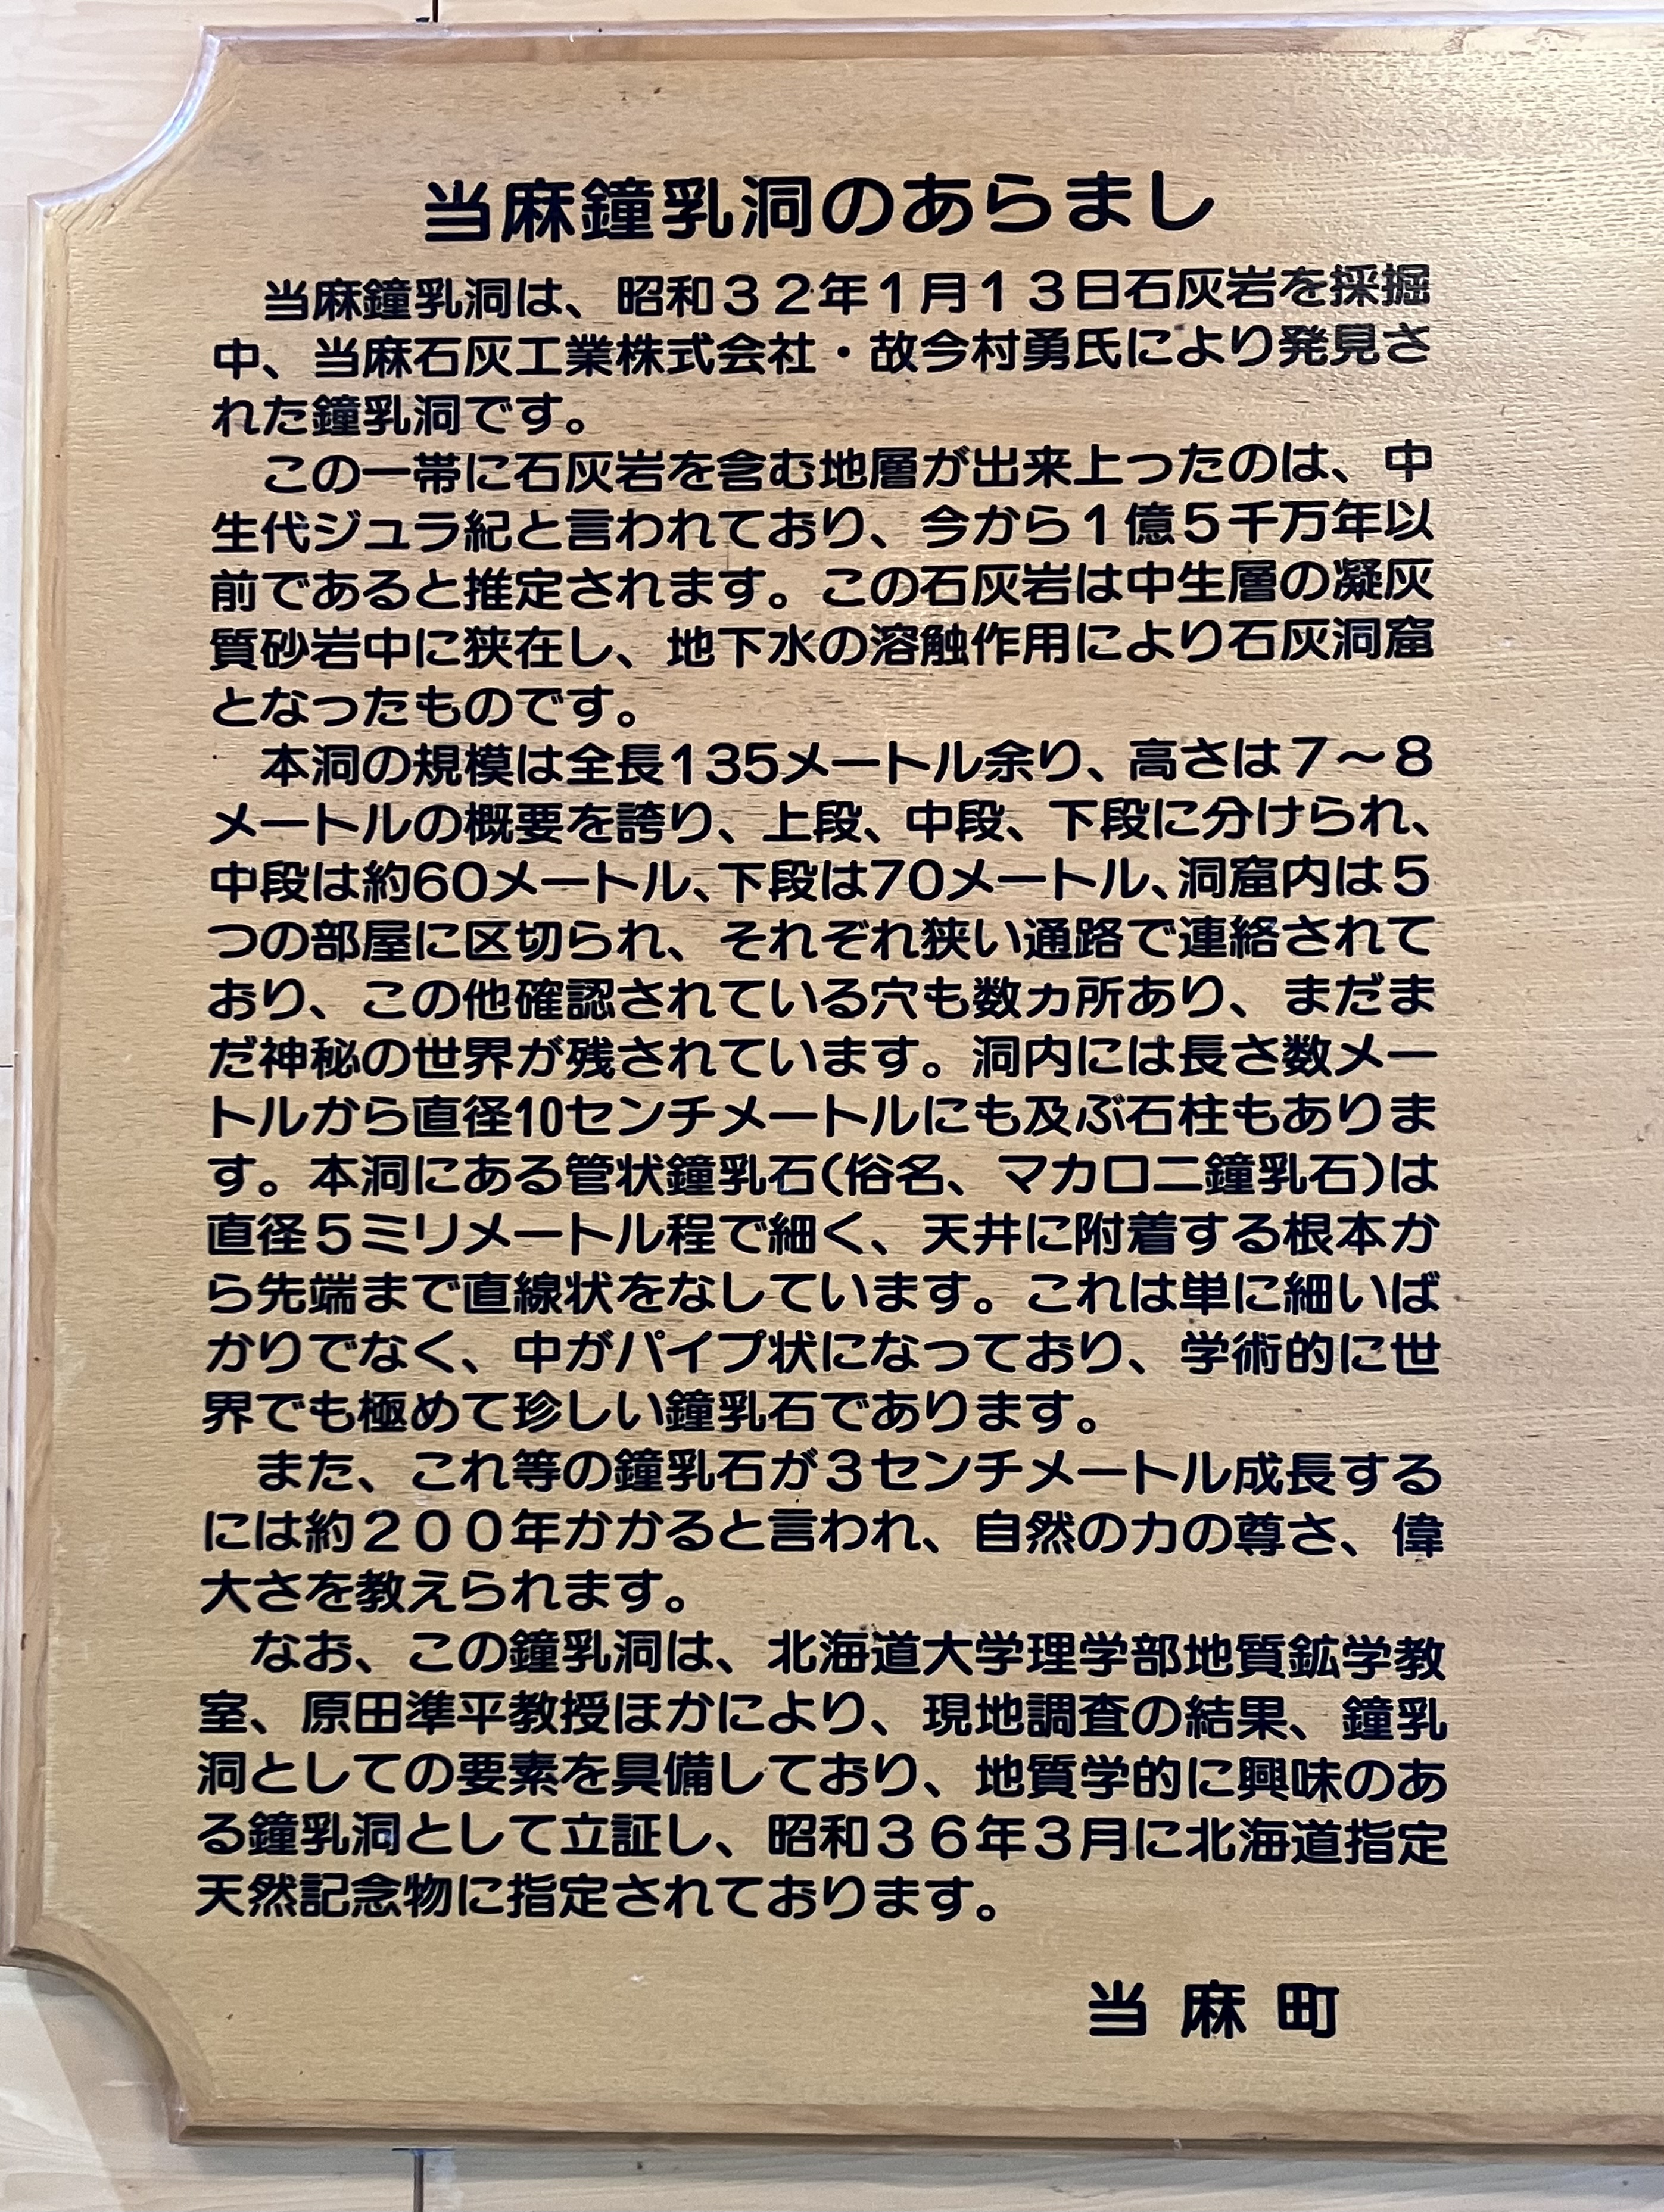 当麻鐘乳洞のあらまし
当麻鐘乳洞は、昭和３２年１月１３日石灰岩を採掘
中、当麻石灰工業株式会社・故今村勇氏により発見さ
れた鐘乳洞です。
この一帯に石灰岩を含む地層が出来上ったのは、中
生代ジュラ紀と言われており、今から１億５千万年以
前であると推定されます。この石灰岩は中生層の凝灰
質砂岩中に狭在し、地下水の溶触作用により石灰洞窟
となったものです。
本洞の規模は全長135メートル余り、高さは７～８
メートルの概要を誇り、上段、中段、下段に分けられ、
中段は約60メートル、下段は70メートル、洞窟内は５
つの部屋に区切られ、それぞれ狭い通路で連絡されて
おり、この他確認されている穴も数ヵ所あり、まだま
だ神秘の世界が残されています。洞内には長さ数メー
トルから直径10センチメートルにも及ぶ石柱もありま
す。本洞にある管状鐘乳石(俗名、マカロニ鐘乳石)は
直径５ミリメートル程で細く、天井に附着する根本か
ら先端まで直線状をなしています。これは単に細いば
かりでなく、中がパイプ状になっており、学術的に世
界でも極めて珍しい鐘乳石であります。
また、これ等の鐘乳石が３センチメートル成長する
には約２００年かかると言われ、自然の力の尊さ、偉
大さを教えられます。
なお、この鐘乳洞は、北海道大学理学部地質鉱学教
室、原田準平教授ほかにより、現地調査の結果、鐘乳
洞としての要素を具備しており、地質学的に興味のあ
る鐘乳洞として立証し、昭和３６年３月に北海道指定
天然記念物に指定されております。
当麻町